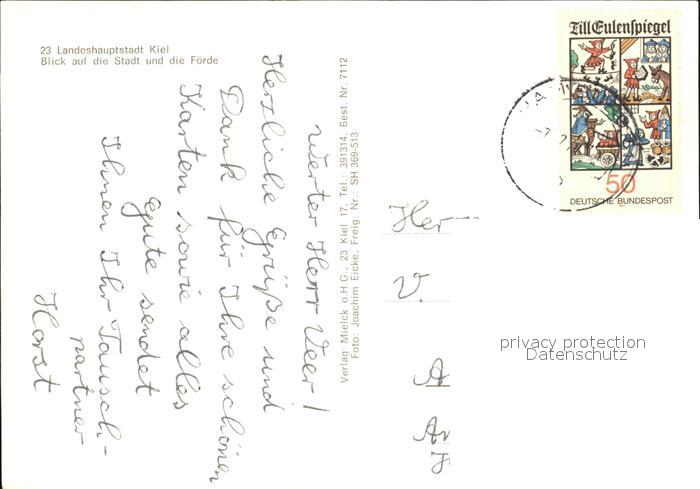 23 Landeshauptstadt Kiel
Blick auf die Stadt und die Förde
Werter Herr Veer!
Herzliche Grüße und
Dank für Ihre schönen
Karten sowie alles
Gute sendet
Ihnen Ihr Tausch-
partner
Horst
Verlag: Mielck o.H.G., 23 Kiel 17, Tel.: 391314, Best. Nr. 7112
Foto: Joachim Eicke, Freig. Nr.: SH 369-513
Till Eulenspiegel
50
DEUTSCHE BUNDESPOST
Her
V.
A
privacy protection
Datenschutz